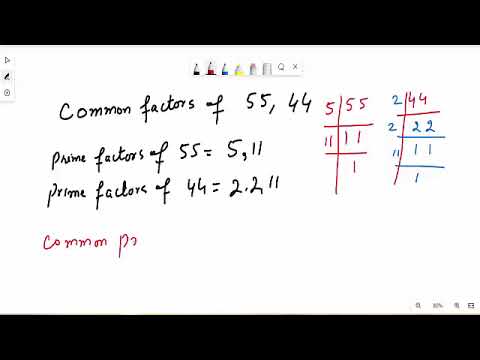 Common factors of 55, 44
prime factors of 55 = 5, 11
prime factors of 44 = 2.2 11
Common pr
5 55
11 11
1
2 44
2 22
11 11
1
80%